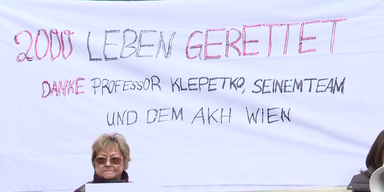 2000 LEBEN GERETTET
DANKE PROFESSOR KLEPETKO, SEINEM TEAM
UND DEM AKH WIEN